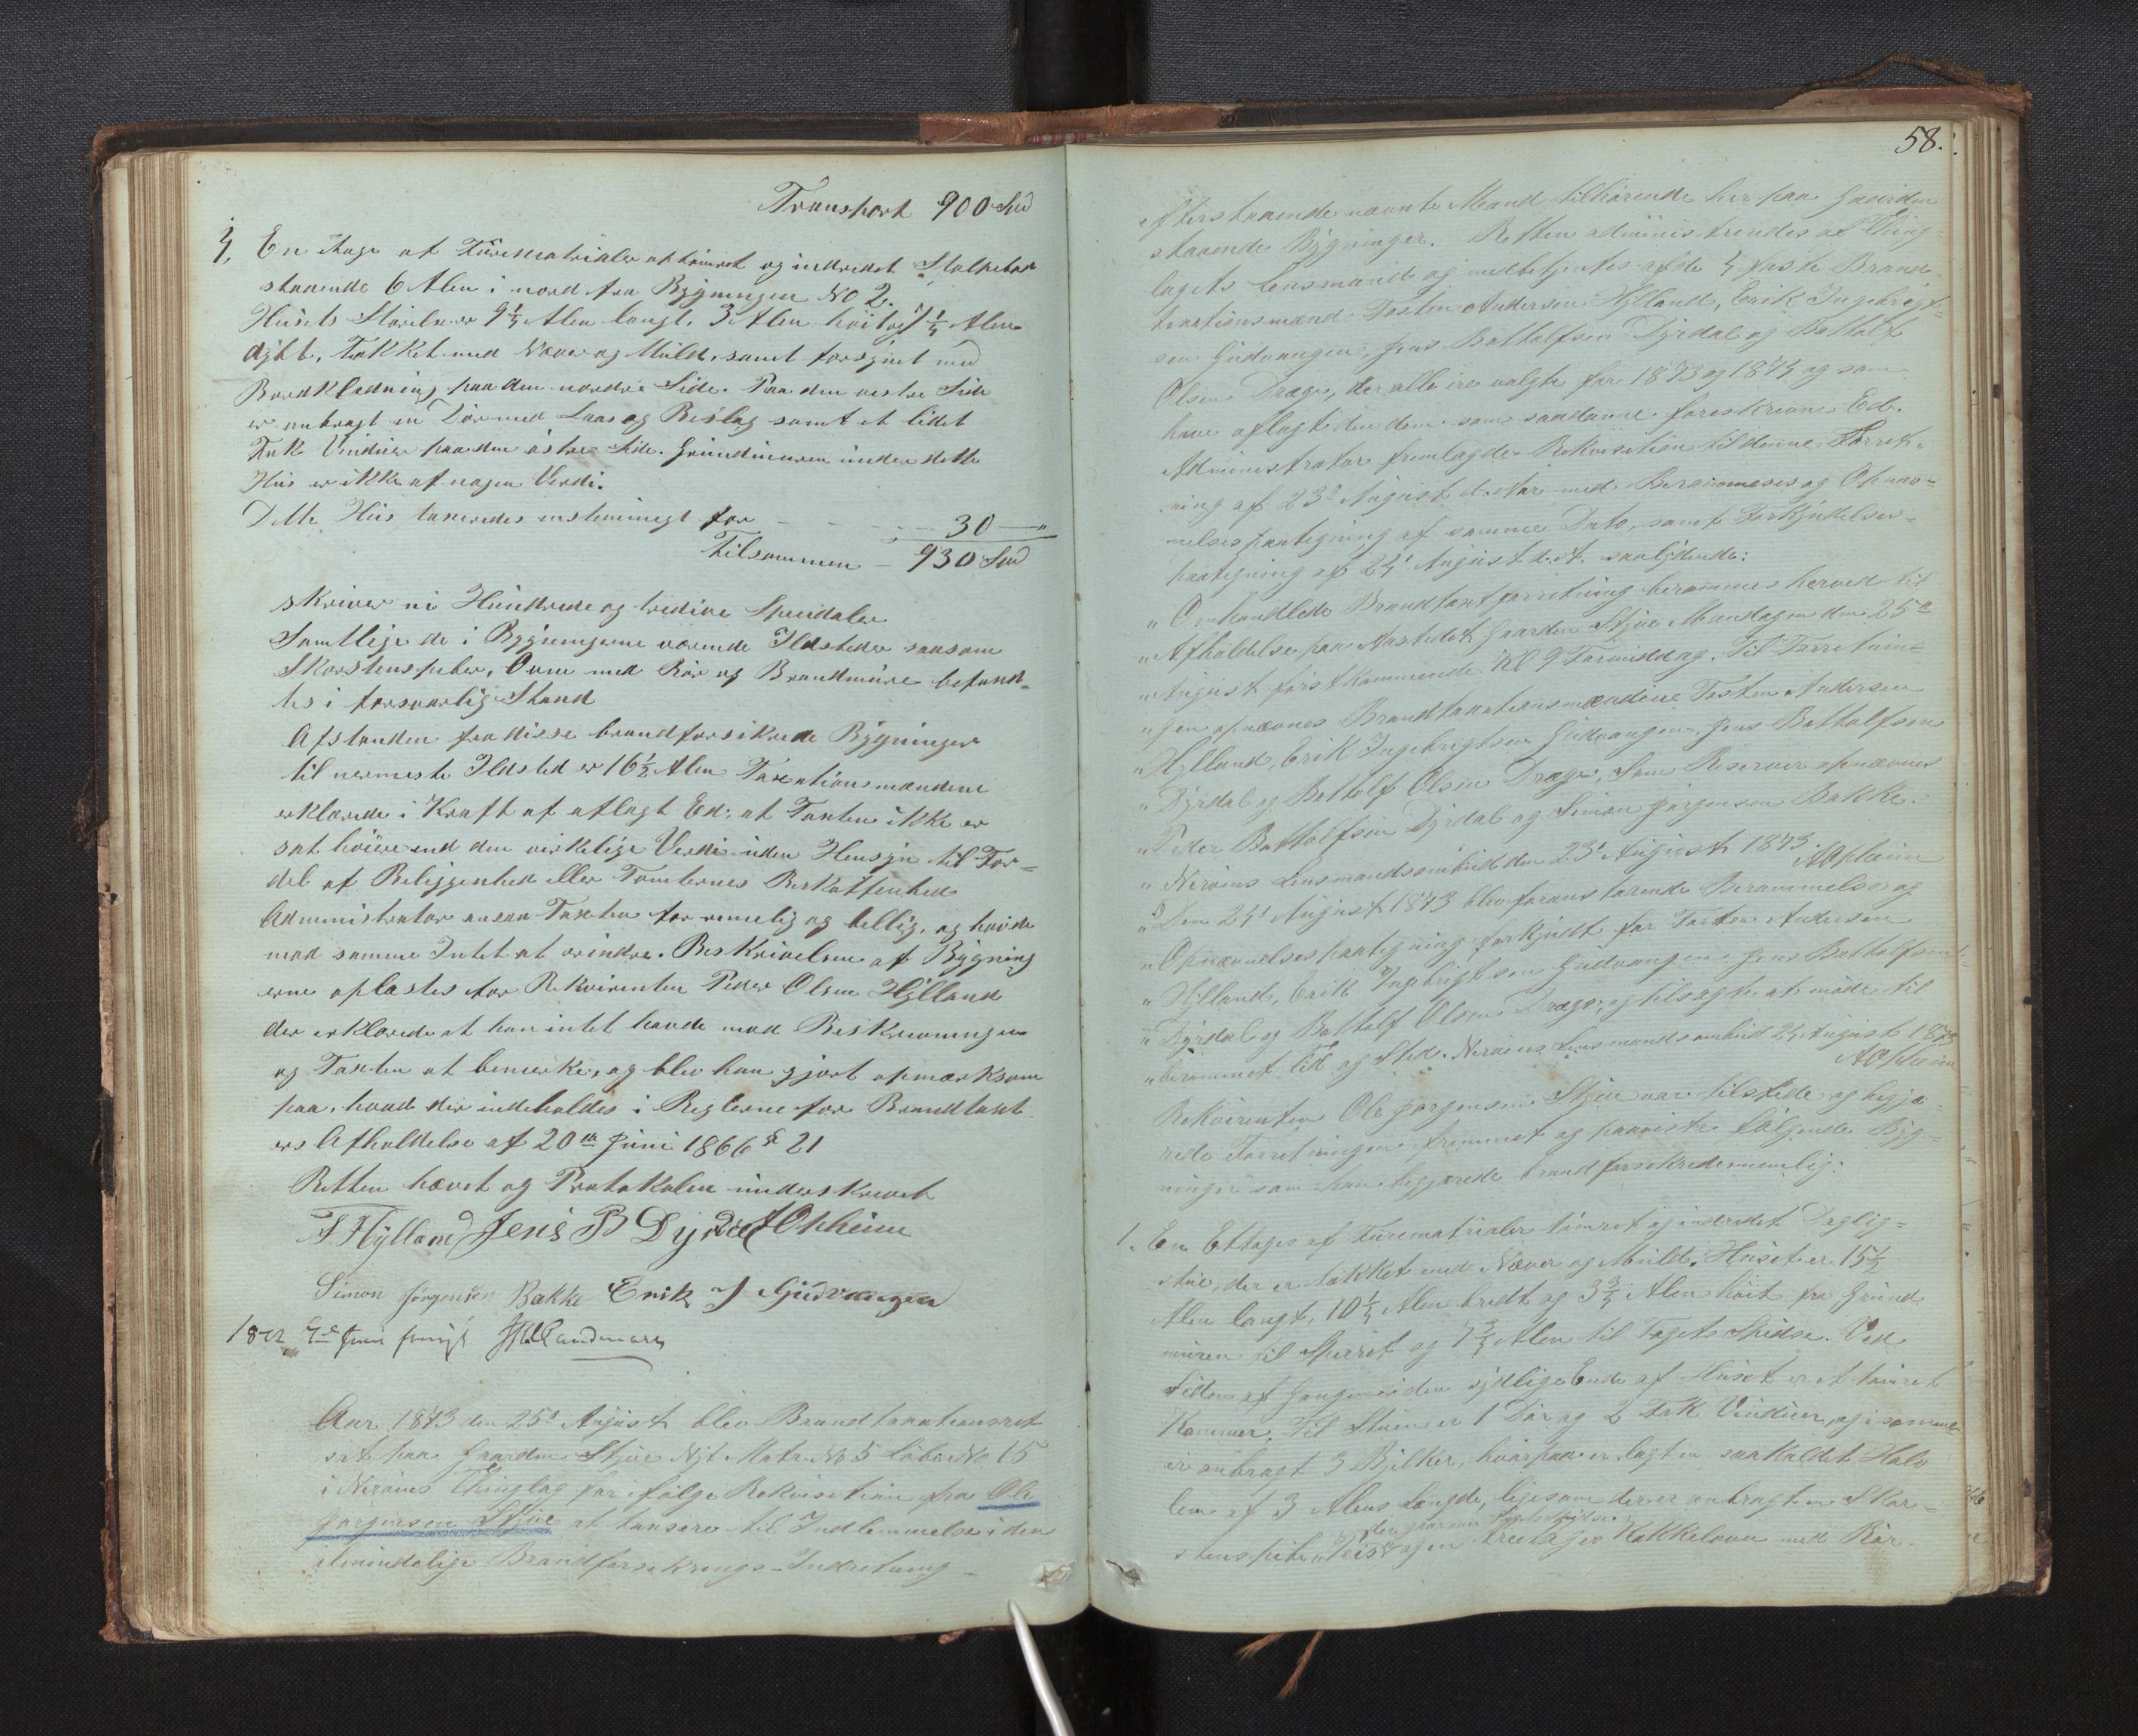 Transport 900 Spd
4. En Etage af Furematrialer optømret og indredet Stolpebod
staaende 6 Alen i nord fra Bygningen No 2.
Husets Størelse er 9 1/4 Alen langt, 3 Alen høit og 7 1/4 Alen
dybt, Tækket med Næver og Muld, samt forsynet med
Bordklædning paa den nordre Side. Paa den vestre Side
er anbragt en Dør med Laas og Beslag samt et lidet
Fak Vinduer paa den østre Side. Grundmuren under dette
Hus er ikke af nogen Verdi.
Dette Hus taxeredes enstemmigt for - - - 30 - "
Tilsammen - 930 Spd
skriver ni Hundrede og tredive Specidaler
Samtlige de i Bygningerne værende Ildsteder saasom
Skorstenspiber, Ovne med Rør og Brandmure befand-
tes i forsvarlig Stand
Afstanden fra disse brandforsikrede Bygninger
til nærmeste Ildsted er 16 1/2 Alen Taxationsmændene
erklærede i Kraft af aflagt Ed: at Taxten ikke er
sat høiere end den virkelige Verdi uden Hensyn til For-
del af Beliggenhed eller Tomternes Beskaffenhed
Administrator ansaa Taxten for rimelig og billig, og havde
mod samme Intet at erindre. Beskrivelsen af Bygning
erne oplæstes for Rekvirenten Peder Olsen Hylland
der erklærede at han intet havde mod Beskrivningen
og Taxten at bemerke, og blev han gjort opmærksom
paa, hvad der indeholdes i Reglerne for Brandtaxt
ers Afholdelse af 20de Juni 1866 § 21
Retten hævet og Protokolen underskrevet
T Hylland Jens B Dyrdal AOpheim
Simon Jørgensen Bakke Erik I Gudvangen
Aar 1873 den 25de August blev Brandtaxationsret
sat paa Gaarden Stjve Nyt Matr. No 5 Løbe No 15
i Nerøens Thinglag for ifølge Rekvisition fra Ole
Jørgensen Stjve at taxere til Indlemmelse i den
almindelige Brandforsikrings-Indretning
58.
efterstaaende nævnte Mand tilhørende her paa Gaarden
staaende Bygninger. Retten administreredes af Thing-
lagets Lensmand og medbetjentes af de 4 faste Brand-
taxationsmænd Torsten Andersen Hylland, Erik Ingebrigt-
sen Gudvangen, Jens Bottolfsen Dyrdal og Bottolf
Olsen Drægo, der alle ere valgte for 1873 og 1874 og som
have aflagt den dem som saadanne foreskrevne Ed.
Administrator fremlagde Rekvisition til denne Forret-
ning af 23de August d. Aar med Berammelses og Opnæv-
nelsespaategning af samme Dato, samt Forkyndelses-
paategning af 24de August d. A. saalydende:
" Omhandlede Brandtaxtforretning berammes herved til
" Afholdelse paa Aastedet Gaarden Stjve Mandagen den 25de
" August førstkommende Kl 9 Formiddag. Til Forretnin-
" gen opnævnes Brandtaxationsmændene Torsten Andersen
" Hylland, Erik Ingebrigtsen Gudvangen, Jens Bottolfsen
" Dyrdal og Bottolf Olsen Drægo, Som Reserver opnævnes
" Peder Bottolfsen Dyrdal og Simon Jørgensen Bakke.
" Nerøens Lensmandsombud den 23de August 1873. AOpheim
" Den 24de August 1873 blev foranstaaende Berammelse og
" Opnævnelsespaategning forkyndt for Torsten Andersen
" Hylland, Erik Ingebrigtsen Gudvangen, Jens Bottolfsen
" Dyrdal og Bottolf Olsen Drægo, og tilsagte at møde til
" berammet Tid og Sted. Nerøens Lensmandsombud 24 August 1873
AOpheim
Rekvirenten Ole Jørgensen Stjve var tilstede og begjæ-
rede Forretningen fremmet og paaviste følgende Byg-
ninger som han begjærede brandforsikrede nemlig:
1. En Ettages af Furematrialer tømret og indredet Daglig-
stue, der er tækket med Næver og Muld. Huset er 15 1/2
Alen langt, 10 1/4 Alen bredt og 3 3/4 Alen høit fra Grund
muren til Sperret og 7 3/4 Alen til Tagets Spidse. Ved
Siden af Gangen i den sydlige Ende af Huset er et tømret
Kammer. Til Stuen er 1 Dør og 2 Fak Vinduer, og i samme
er anbragt 3 Bjelker, hvorpaa er lagt en saakaldet Halv
lem af 3 Alens Længde, ligesom der er anbragt en Skor-
stenspibe "Peis" og en treetages Kakkelovn med Rør